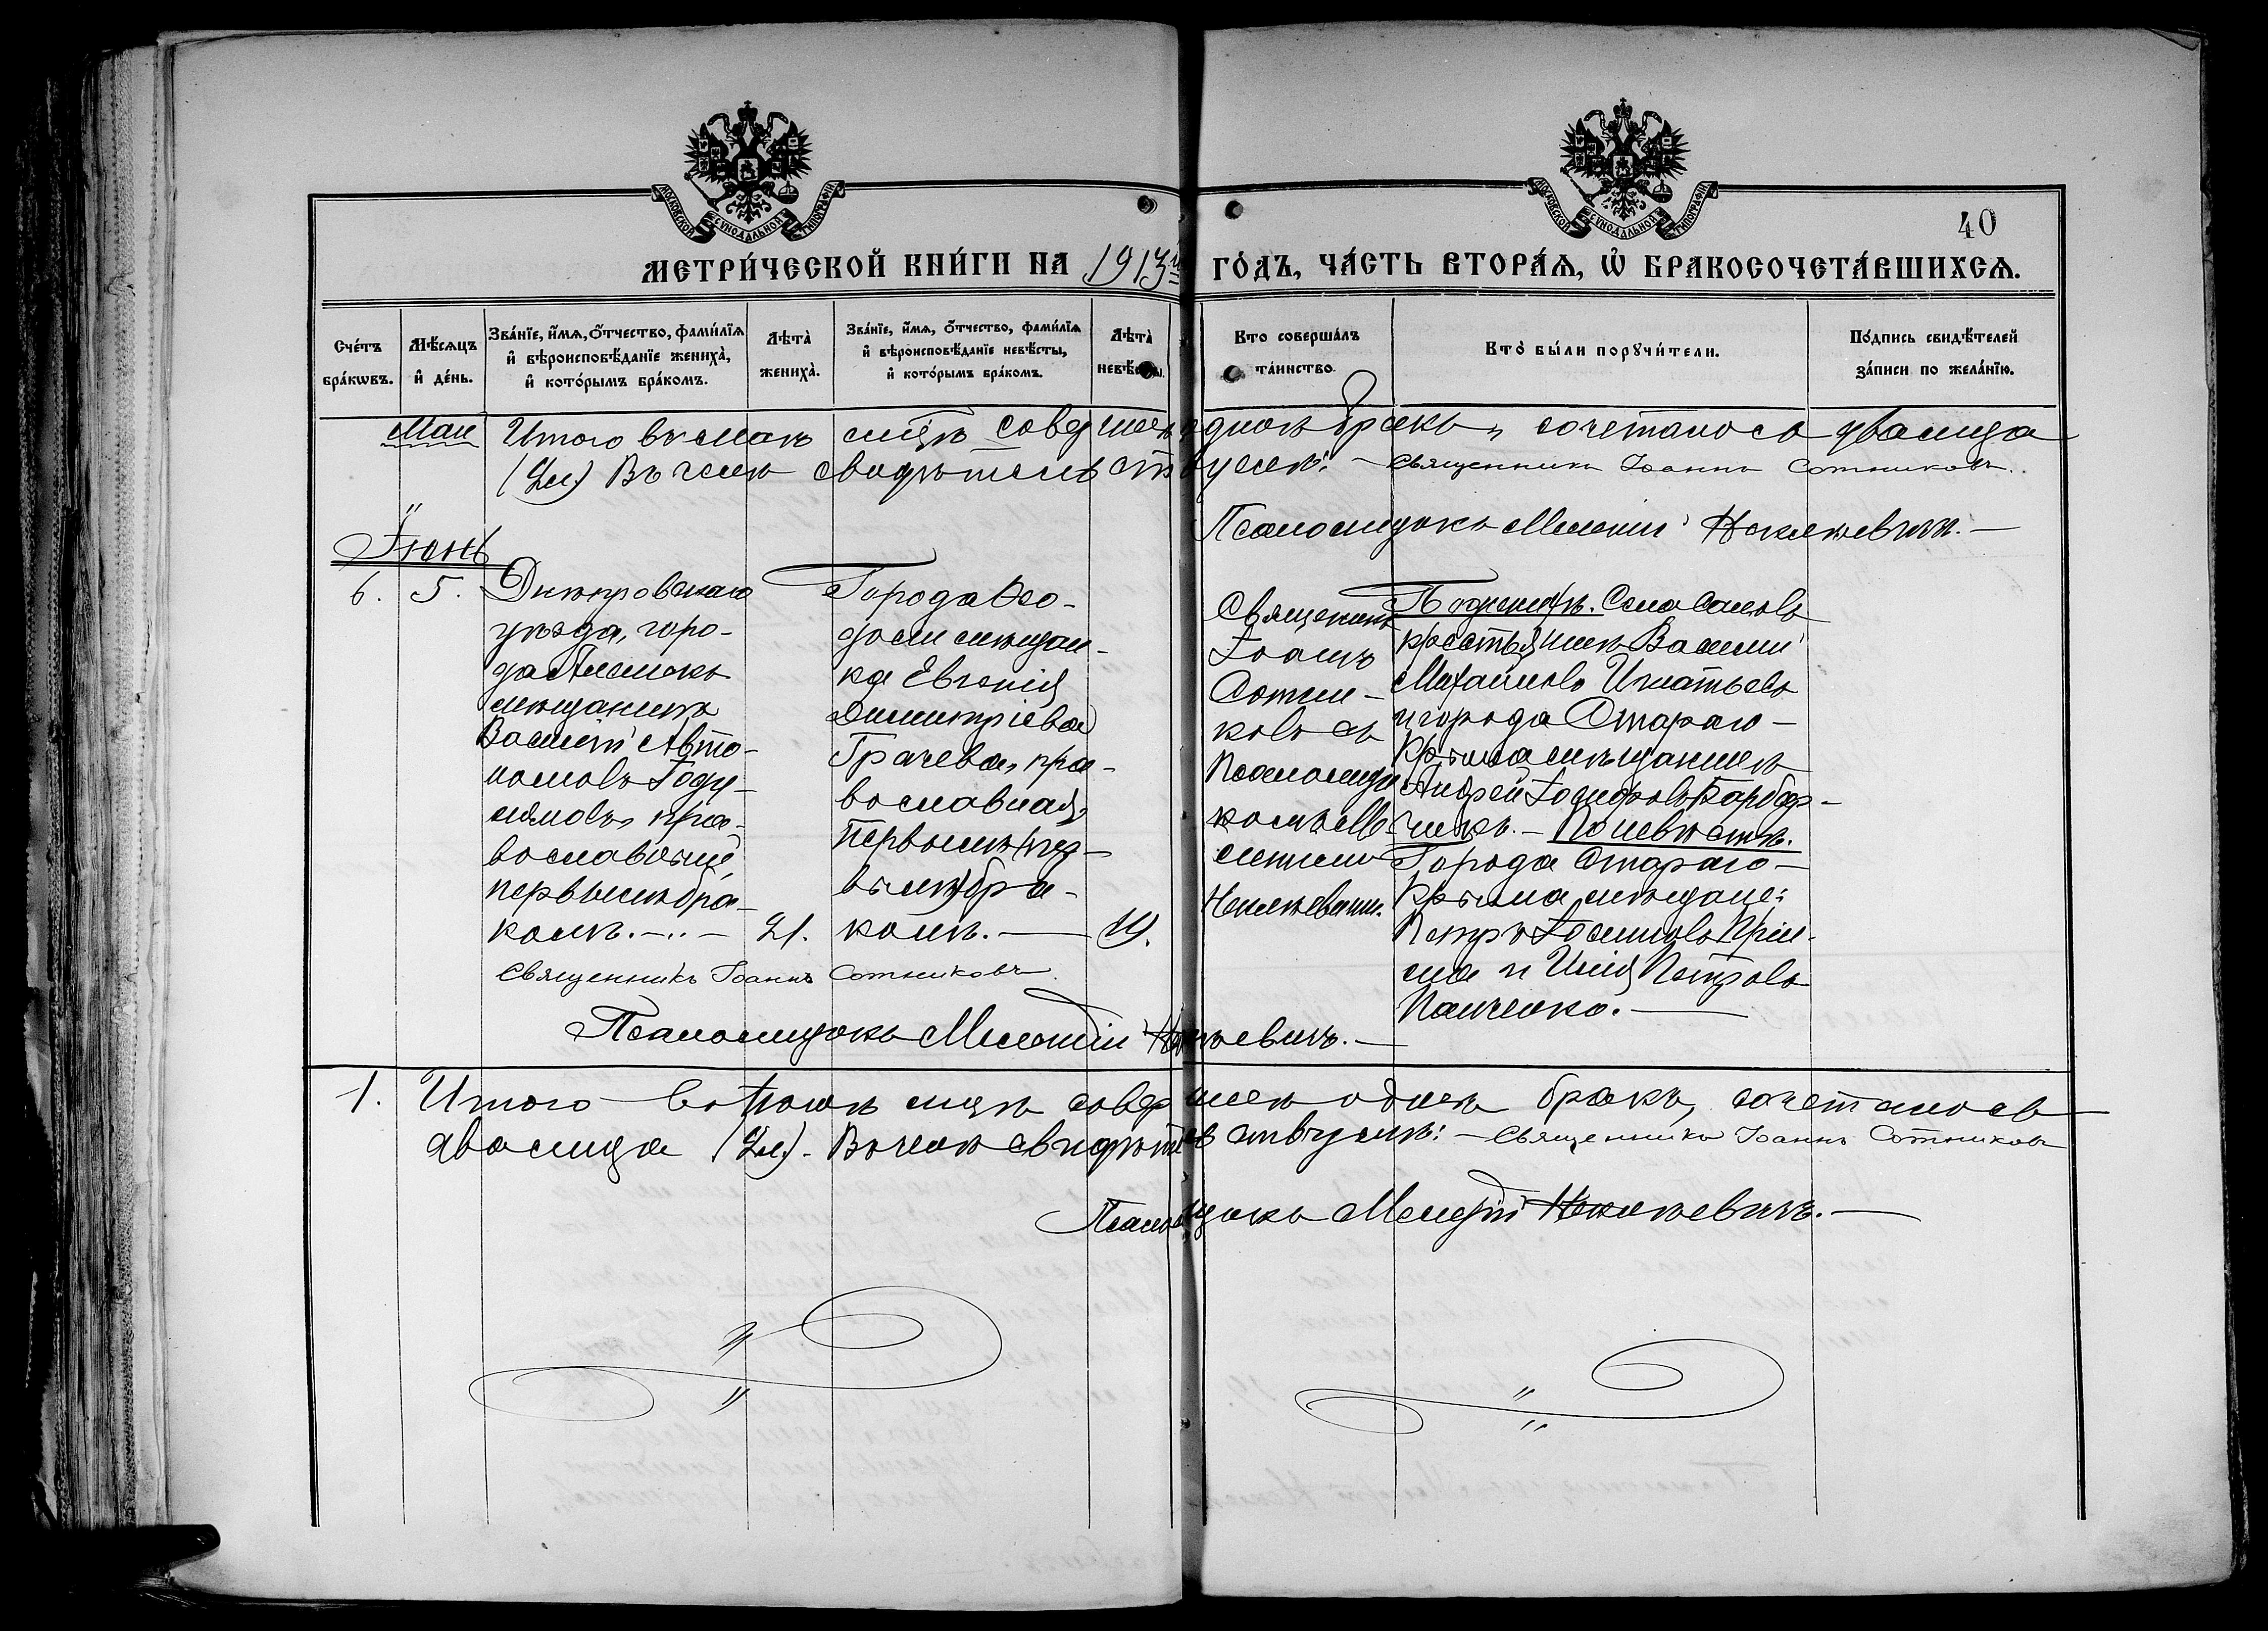 МОСКОВСКОЙ СУНОДАЛЬНОЙ ТИПОГРАФІИ
МОСКОВСКОЙ СУНОДАЛЬНОЙ ТИПОГРАФІИ
40
МЕТРИ́ЧЕСКОЙ КНИ́ГИ НА 1913й ГО́ДЪ, ЧА́СТЬ ВТОРА́Я, Ѡ БРАКОСОЧЕТА́ВШИХСЯ.
Сче́тъ
бра́кѡвъ.
Мѣ́сяцъ
и де́нь.
Зва́нїе, и́мя, ѻ́тчество, фами́лїя
и вѣроисповѣ́данїе жениха̀,
и кото́рымъ бра́комъ.
Лѣта̀
жениха̀.
Зва́нїе, и́мя, ѻ́тчество, фами́лїя
и вѣроисповѣ́данїе невѣ́сты,
и кото́рымъ бра́комъ.
Лѣта̀
невѣ́сты.
Кто соверша́лъ
та́инство.
Кто̀ бы́ли порꙋчи́тели.
По́дпись свидѣ́телей
за́писи по жела́нїю.
Май Итого въ маѣ мцѣ совершенъ одинъ бракъ, сочеталось два лица
(2л.) Въ чемъ свидѣтельствуемъ: – Священникъ Іоаннъ Сотниковъ.
Псаломщикъ Мелетій Неклѣевичъ. –
Іюнь
6. 5.
Днѣпровскаго
уѣзда, горо-
да Алешекъ
мѣщанинъ
Василій Авто-
номовъ
православный,
первымъ бра-
комъ. –..– 21.
Города Ѳео-
досіи мѣщан-
ка Евгенія
Димитріева
Грачева, пра-
вославная,
первымъ
бра-
комъ. – 19.
Священникъ
Іоаннъ
Сотни-
ковъ съ
псаломщи-
комъ Ме-
летіемъ
Неклѣевичемъ.
По женихѣ. Села
крестьянинъ Василій
Михайловъ Игнатьевъ
и города Стараго-
Крыма мѣщанинъ
Андрей Іосифовъ
– По невѣстѣ.
Города Стараго-
Крыма мѣщане:
Петръ
и Илія Петровъ
Панченко. –
Священникъ Іоаннъ Сотниковъ.
Псаломщикъ Мелетій Неклѣевичъ. –
1. Итого въ Іюнѣ мцѣ совершенъ одинъ бракъ, сочеталось
два лица (2л.). Въ чемъ свидѣтельствуемъ: – Священникъ Іоаннъ Сотниковъ
Псаломщикъ Мелетій Неклѣевичъ. –